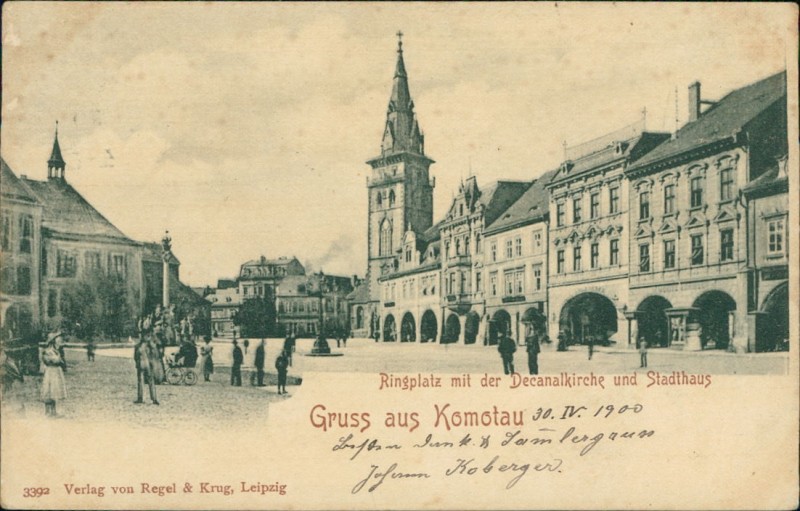 Ringplatz mit der Decanalkirche und Stadthaus
Gruss aus Komotau 30. IV. 1900
Besten Dank &
Johann Koberger.
3392 Verlag von Regel & Krug, Leipzig